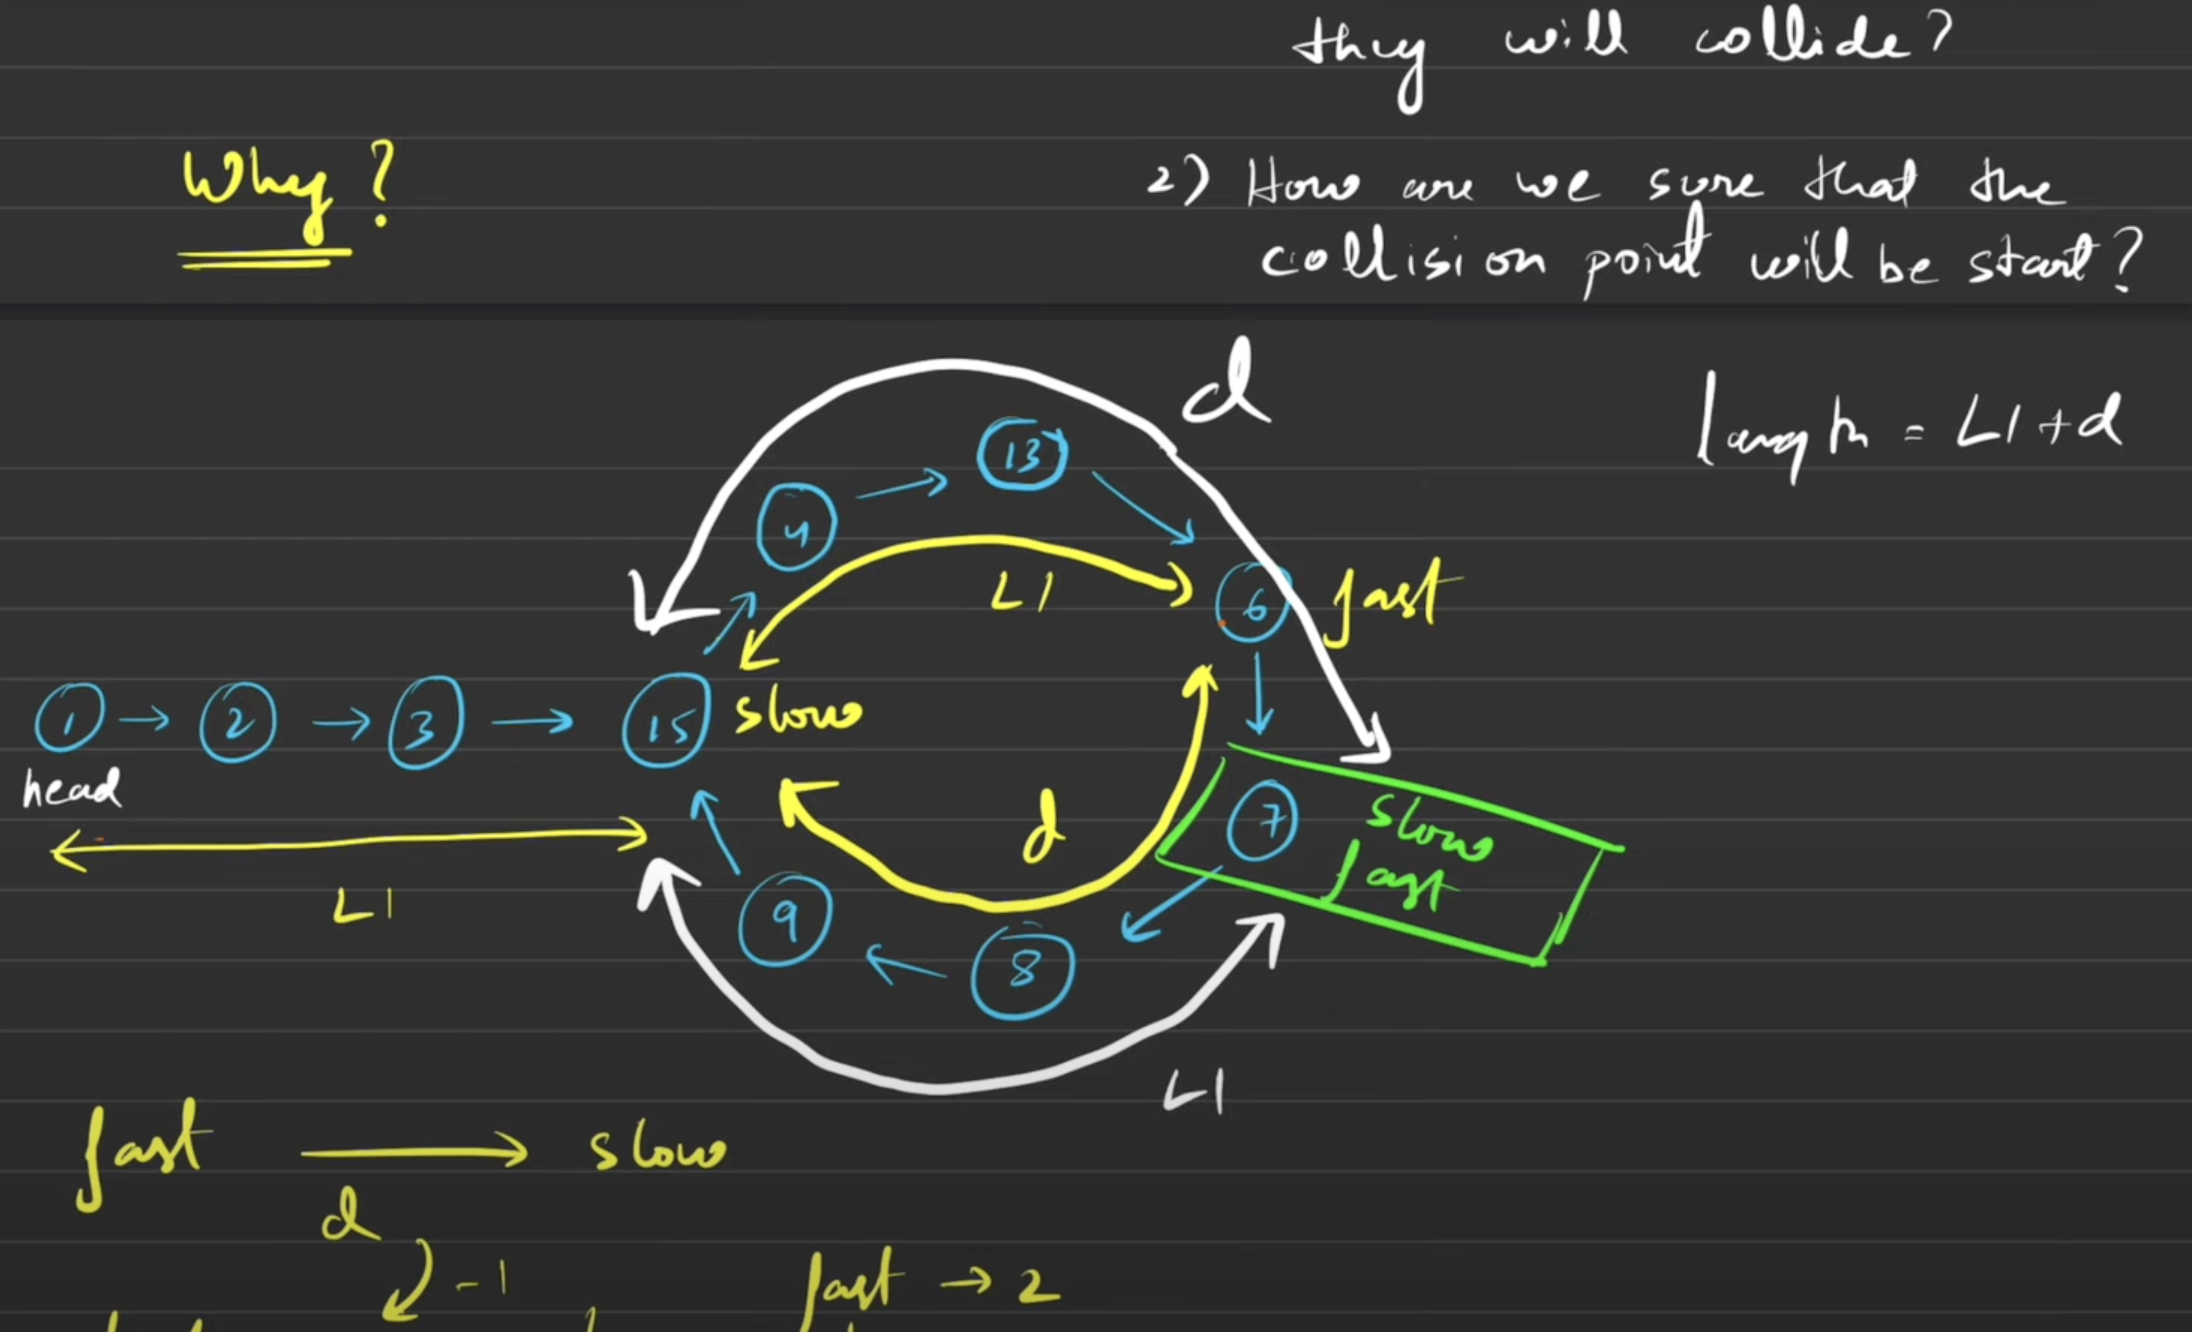 they will collide?
Why?
2) How are we sure that the
collision point will be start?
d
length = L1 + d
13
4
L1
6 fast
1 → 2 → 3 → 15 slow
head
7 slow
fast
d
L1
9
8
L1
fast → slow
d
-1
fast → 2